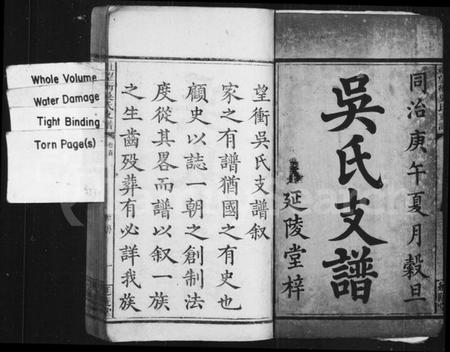 同治庚午夏月穀旦
吳氏支譜
延陵堂梓
望衡吳氏支譜叙
家之有譜猶國之有史也
顧史以誌一朝之創制法
度從其畧而譜以叙一族
之生齒殁葬有必詳我族
Whole Volume
Water Damage
Tight Binding
Torn Page(s)